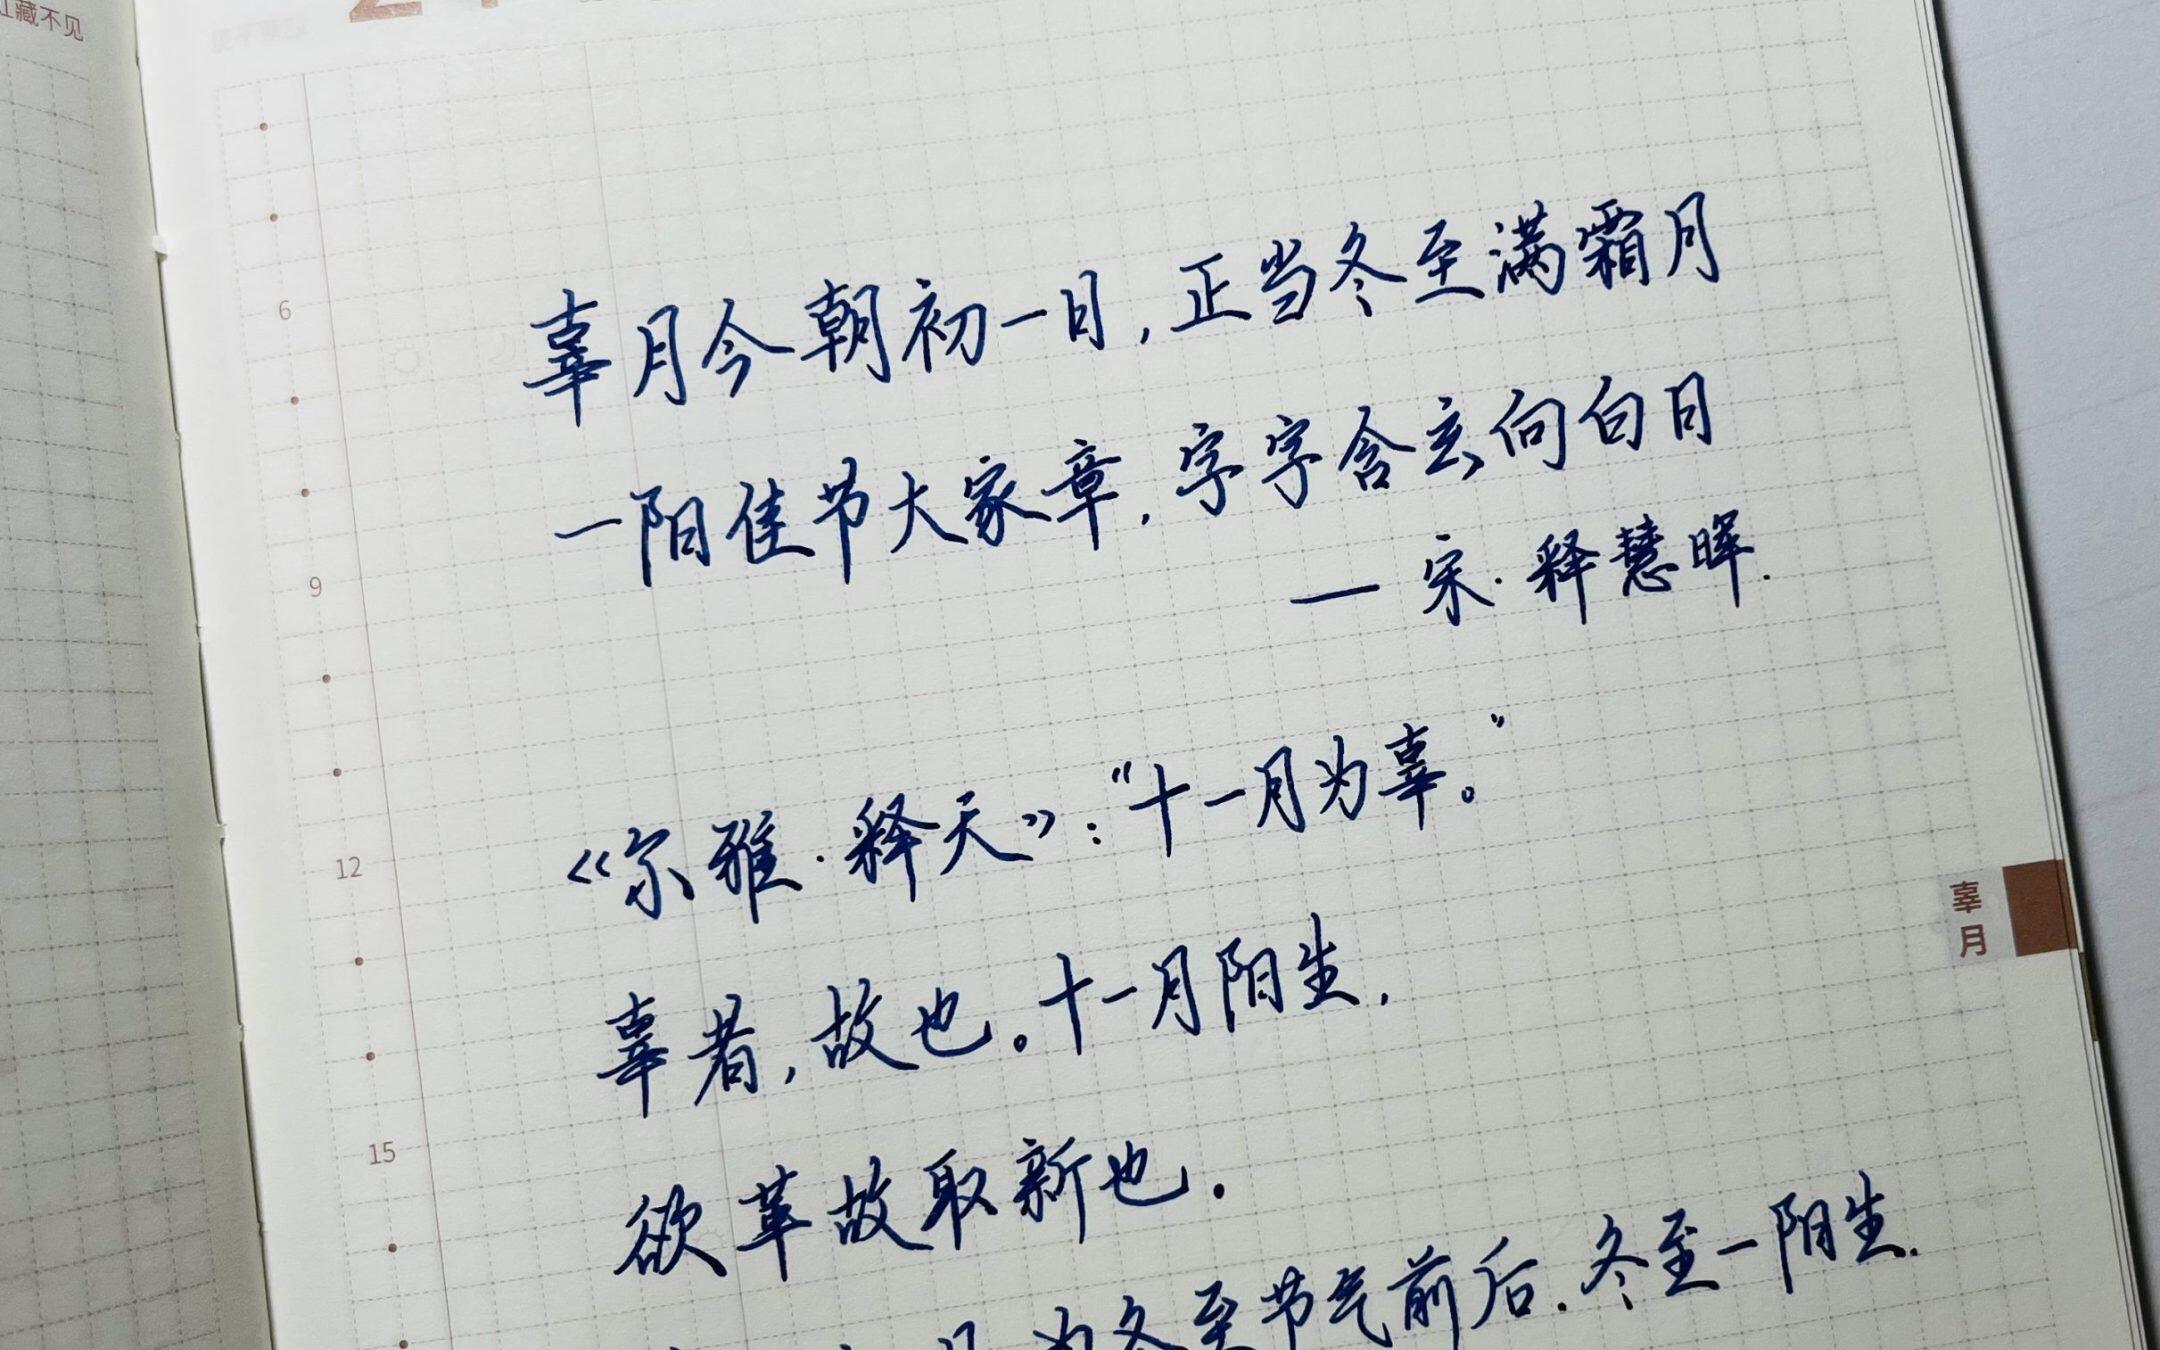 藏不见
辜月今朝初一日,正当冬至满霜月
一阳佳节大家章,字字含玄向白日
— 宋·释慧晖.
《尔雅·释天》:“十一月为辜。”
辜者,故也。十一月阳生,
欲革故取新也.
月为冬至节气前后.冬至一阳生.
6
9
12
15
辜月